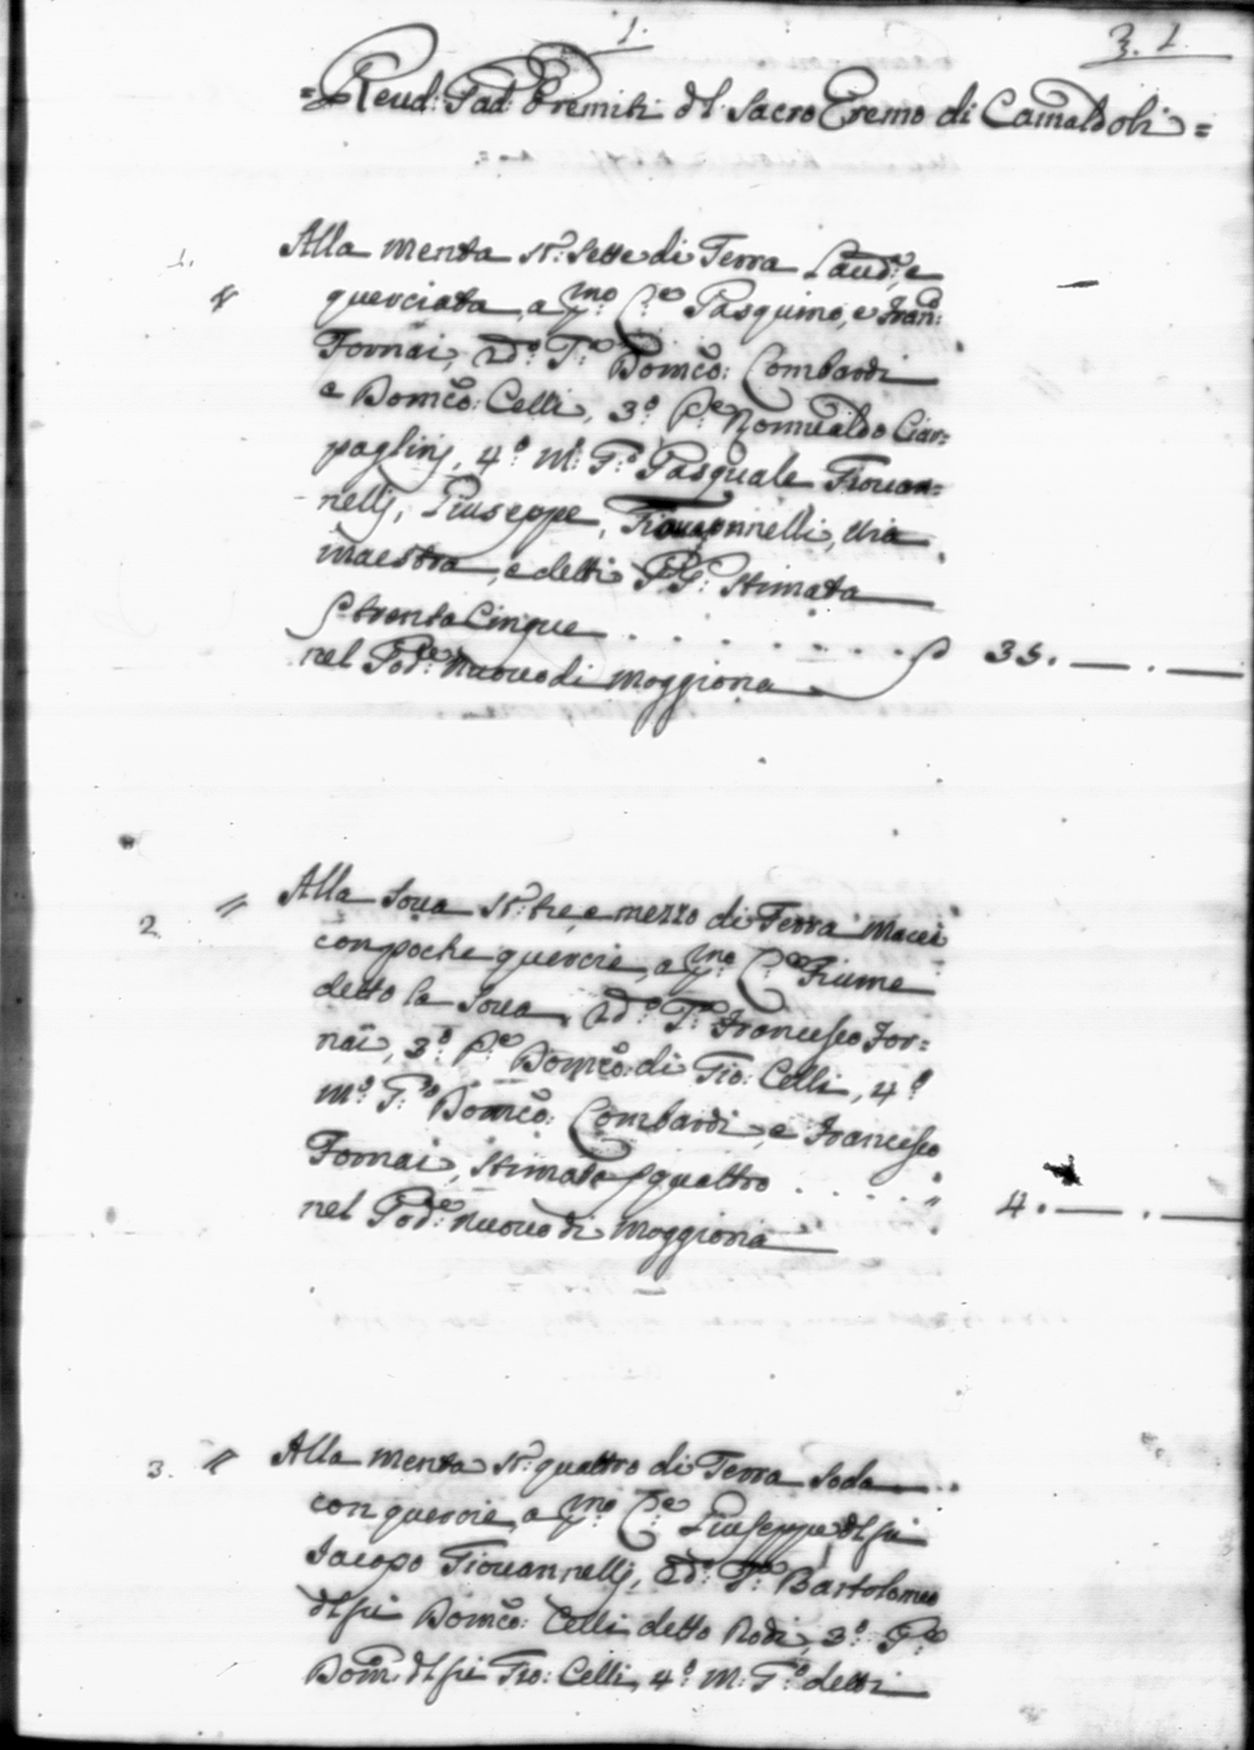 1.
3. 1.
= Reud: Pad: Eremiti dl Sacro Eremo di Camaldoli =
1. Alla Menta St: Sette di Terra Laud: e
querciata, a p.mo C.e Pasquino, e Fran:
Fornai, 2d.o T.o Domco: Lombardi
e Domco: Celli, 3.o P.e Romualdo Ciar=
paglinj, 4.o M: G.o Pasquale Giouan=
nellj, Giuseppe, Giouannelli, Uia
maestra, e detti P.P: Stimata
trenta Cinque . . . . . . . . 35. — . —
nel Pod.e Nuouo di Moggiona
2 " Alla Soua St: tre, e mezzo di Terra Macci
con poche quercie, a p.mo C.e Fiume
detto la Soua, 2d.o T.o Francesco For=
nai, 3.o P.e Domco: di Gio: Celli, 4.o
M.o G.o Domco: Lombardi, e Francesco
Fornai, Stimato quattro . . . . . " 4. — . —
nel Pod.e Nuouo di Moggiona
3. " Alla Menta St: quattro di Terra Soda
con quercie, a p.mo C.e Giuseppe dl fu
Iacopo Giouannellj, 2d.o T.o Bartolomeo
dl fu Domco: Celli detto Rodi, 3.o P.e
Dom: dl fu Gio: Celli, 4.o M: G.o detti